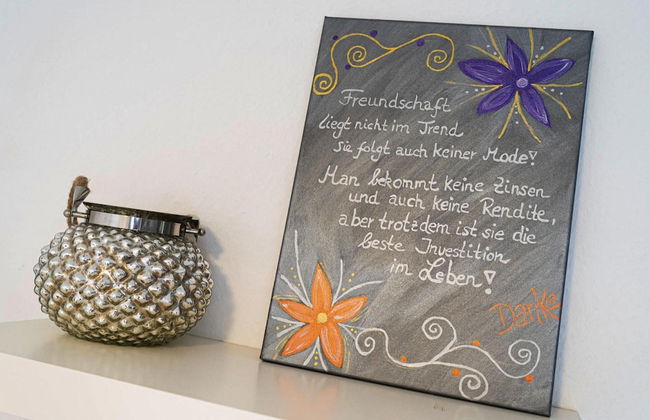 Freundschaft
liegt nicht im Trend
sie folgt auch keiner Mode!
Man bekommt keine Zinsen
und auch keine Rendite,
aber trotzdem ist sie die
beste Investition
im Leben!
Danke